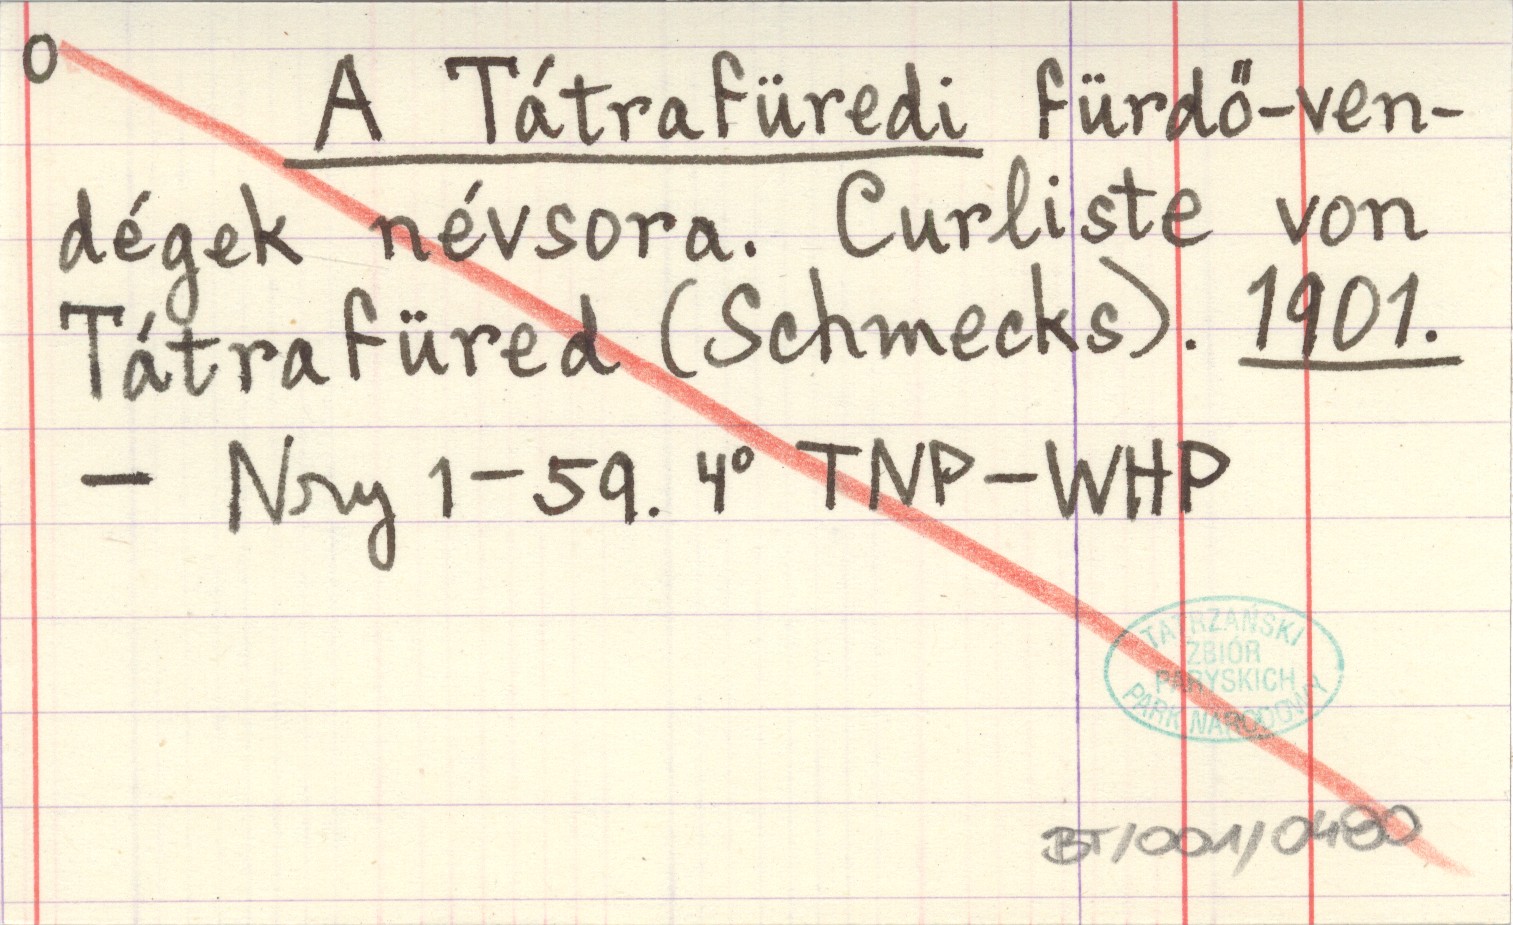 O A Tátrafüredi fürdő-ven-
dégek névsora. Curliste von
Tátrafüred (Schmecks). 1901.
— Nry 1-59. 4° TNP-WHP
TATRZAŃSKI
ZBIÓR
PARYSKICH
PARK NARODOWY
BT/001/0480